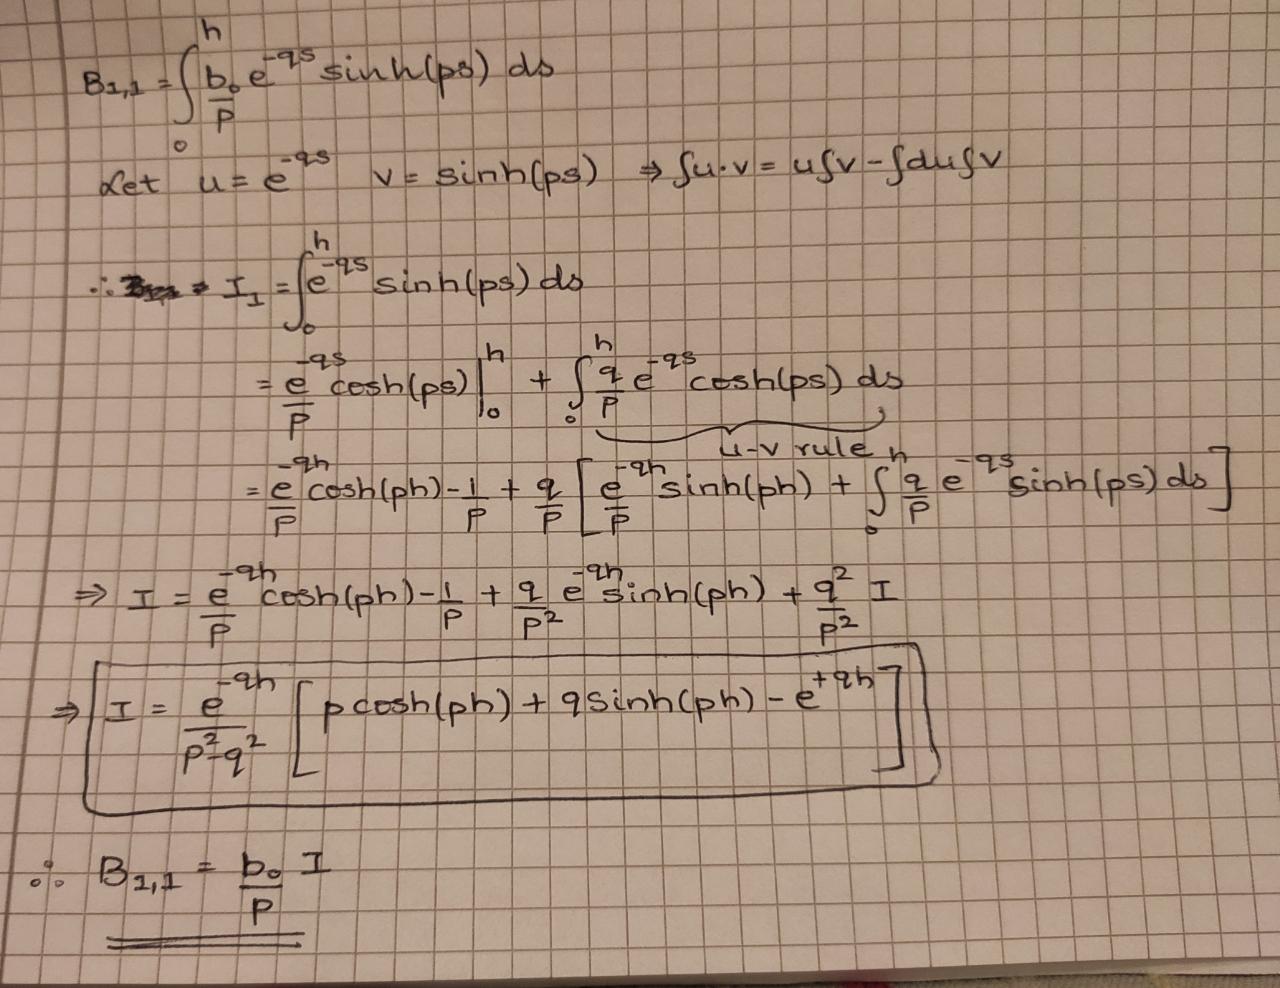 B₁,₁ = ∫₀ʰ b₀/p e^(-qs) sinh(ps) ds
Let u = e^(-qs) v = sinh(ps) ⇒ ∫u·v = u∫v - ∫du∫v
∴ I_I = ∫₀ʰ e^(-qs) sinh(ps) ds
= e^(-qs)/p cosh(ps)|₀ʰ + ∫₀ʰ q/p e^(-qs) cosh(ps) ds
u-v rule
= e^(-qh)/p cosh(ph) - 1/p + q/p [e^(-qh)/p sinh(ph) + ∫₀ʰ q/p e^(-qs) sinh(ps) ds]
⇒ I = e^(-qh)/p cosh(ph) - 1/p + q/p² e^(-qh) sinh(ph) + q²/p² I
⇒ I = e^(-qh)/(p²-q²) [p cosh(ph) + q sinh(ph) - e^(+qh)]
∴ B₁,₁ = b₀/p I